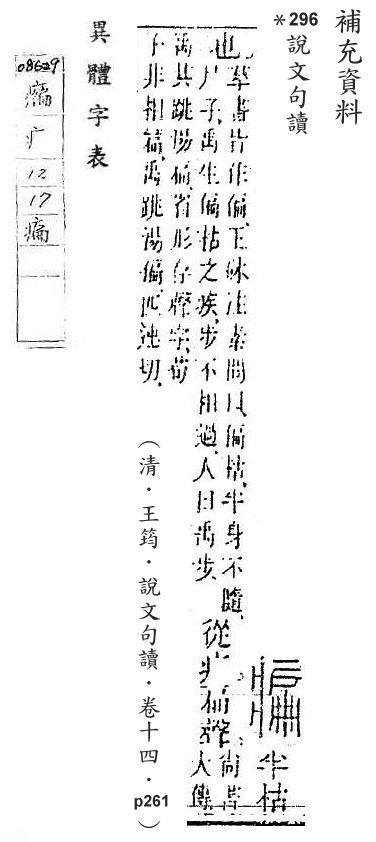 補充資料
*296 說文句讀
㾫 半枯
也 羣書皆作偏。王冰注素問曰。偏枯。半身不隨。
尸子。禹生偏枯之疾。步不相過。人曰禹步。
從疒。扁聲。
尚書大傳
禹其跳湯扁。省形存聲字。荀
子非相篇。禹跳湯偏。匹連切。
(清・王筠・說文句讀・卷十四・p261)
異體字表
08629
㾫
疒
12
17
㾫